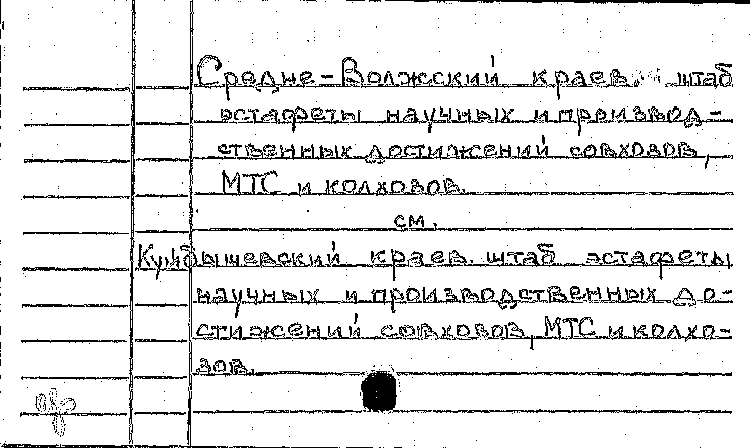 Средне-Волжский краев. штаб
эстафеты научных и производ-
ственных достижений совхозов,
МТС и колхозов.
см.
Куйбышевский краев. штаб эстафеты
научных и производственных до-
стижений совхозов, МТС и колхо-
зов.